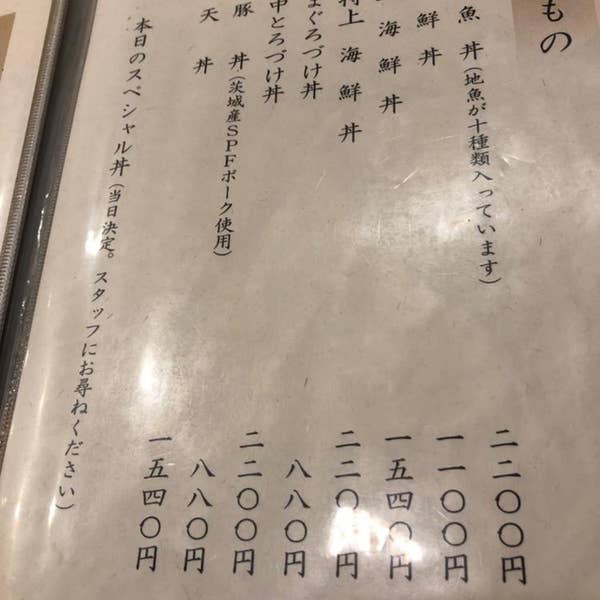 もの
魚丼(地魚が十種類入っています) 二二〇〇円
鮮丼 一一〇〇円
海鮮丼 一五四〇円
特上海鮮丼 二二〇〇円
まぐろづけ丼 八八〇円
中とろづけ丼 二二〇〇円
豚丼(茨城産SPFポーク使用) 八八〇円
天丼 一五四〇円
本日のスペシャル丼(当日決定。スタッフにお尋ねください)